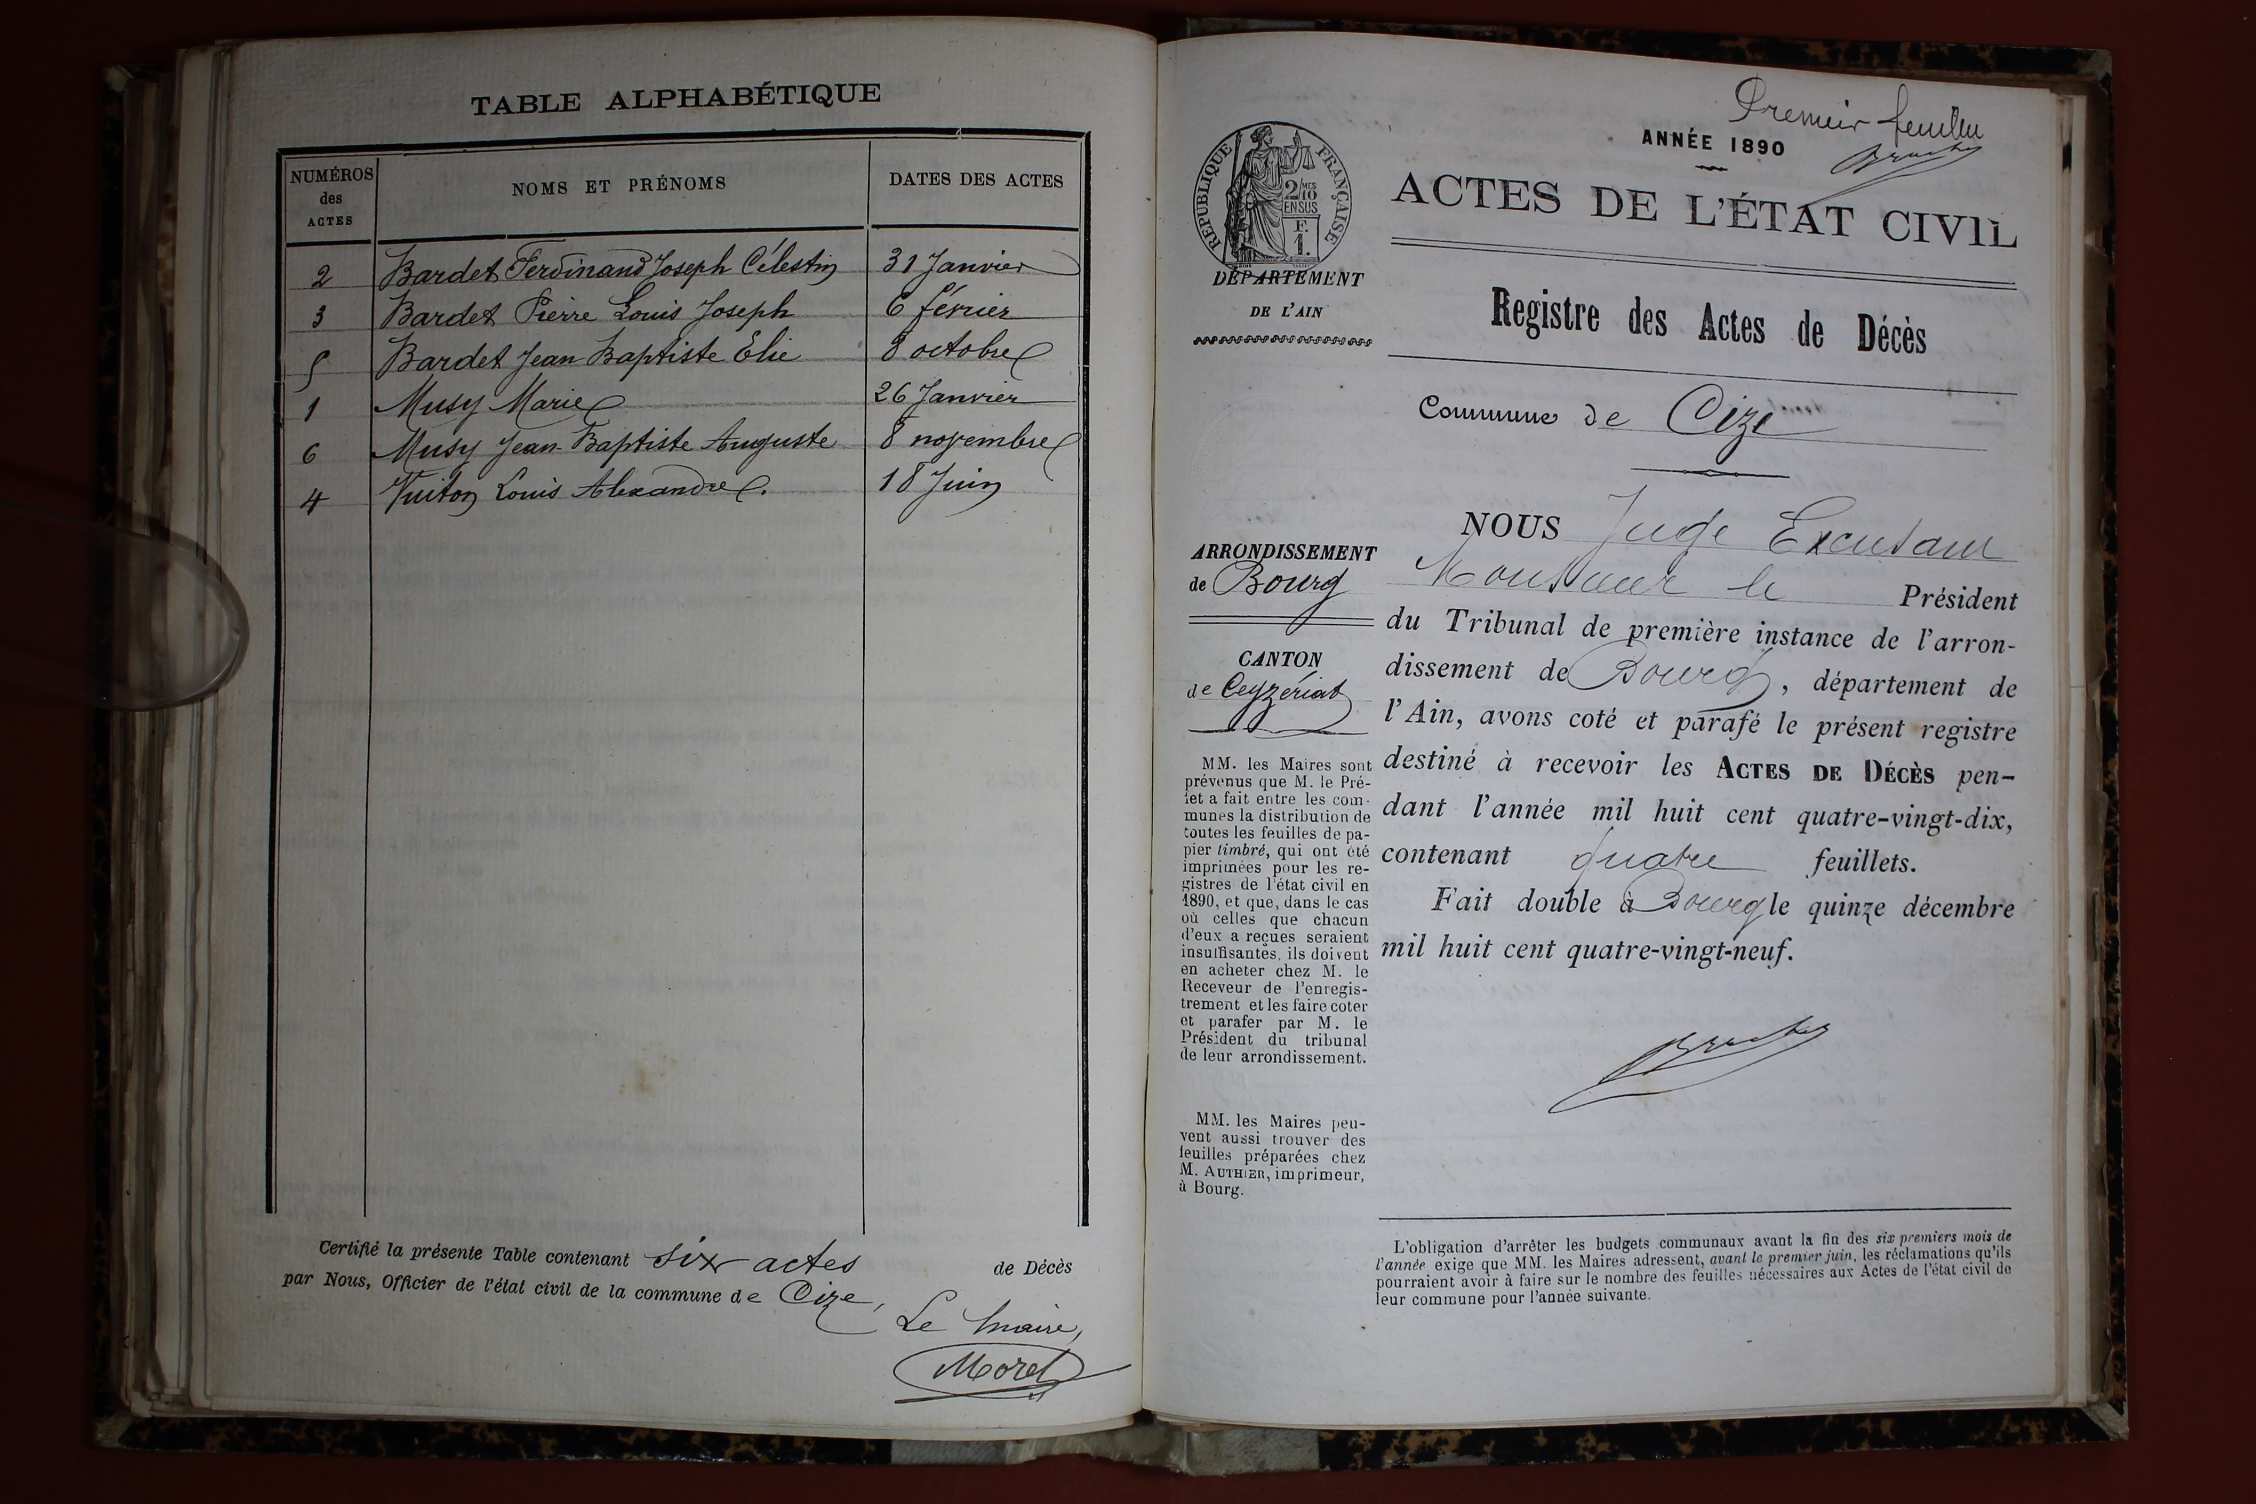 TABLE ALPHABÉTIQUE
NUMÉROS des ACTES NOMS ET PRÉNOMS DATES DES ACTES
2 Bardet Ferdinand Joseph Célestin 31 Janvier
3 Bardet Pierre Louis Joseph 6 février
5 Bardet Jean Baptiste Elie 8 octobre
1 Musy Marie 26 Janvier
6 Musy Jean-Baptiste Auguste 8 novembre
4 Vuiton Louis Alexandre. 18 Juin
Certifié la présente Table contenant six actes de Décès
par Nous, Officier de l'état civil de la commune de Cize,
Le Maire,
Morel
Premier feuillet
ANNÉE 1890
RÉPUBLIQUE FRANÇAISE
2/10 MES
EN SUS
F.
1.
ACTES DE L'ÉTAT CIVIL
DÉPARTEMENT
DE L'AIN
Registre des Actes de Décès
Commune de Cize
ARRONDISSEMENT
de Bourg
CANTON
de Ceyzériat
MM. les Maires sont
prévenus que M. le Pré-
fet a fait entre les com-
munes la distribution de
toutes les feuilles de pa-
pier timbré, qui ont été
imprimées pour les re-
gistres de l'état civil en
1890, et que, dans le cas
où celles que chacun
d'eux a reçues seraient
insuffisantes, ils doivent
en acheter chez M. le
Receveur de l'enregis-
trement et les faire coter
et parafer par M. le
Président du tribunal
de leur arrondissement.
MM. les Maires peu-
vent aussi trouver des
feuilles préparées chez
M. AUTHIER, imprimeur,
à Bourg.
NOUS Juge
Monsieur le Président
du Tribunal de première instance de l'arron-
dissement de Bourg, département de
l'Ain, avons coté et parafé le présent registre
destiné à recevoir les ACTES DE DÉCÈS pen-
dant l'année mil huit cent quatre-vingt-dix,
contenant quatre feuillets.
Fait double à Bourg le quinze décembre
mil huit cent quatre-vingt-neuf.
L'obligation d'arrêter les budgets communaux avant la fin des six premiers mois de
l'année exige que MM. les Maires adressent, avant le premier juin, les réclamations qu'ils
pourraient avoir à faire sur le nombre des feuilles nécessaires aux Actes de l'état civil de
leur commune pour l'année suivante.